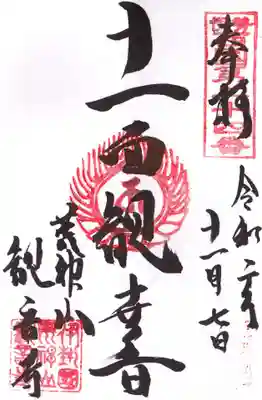 奉拝
令和二年
十一月七日
十一面観世音
荒神山
観音寺